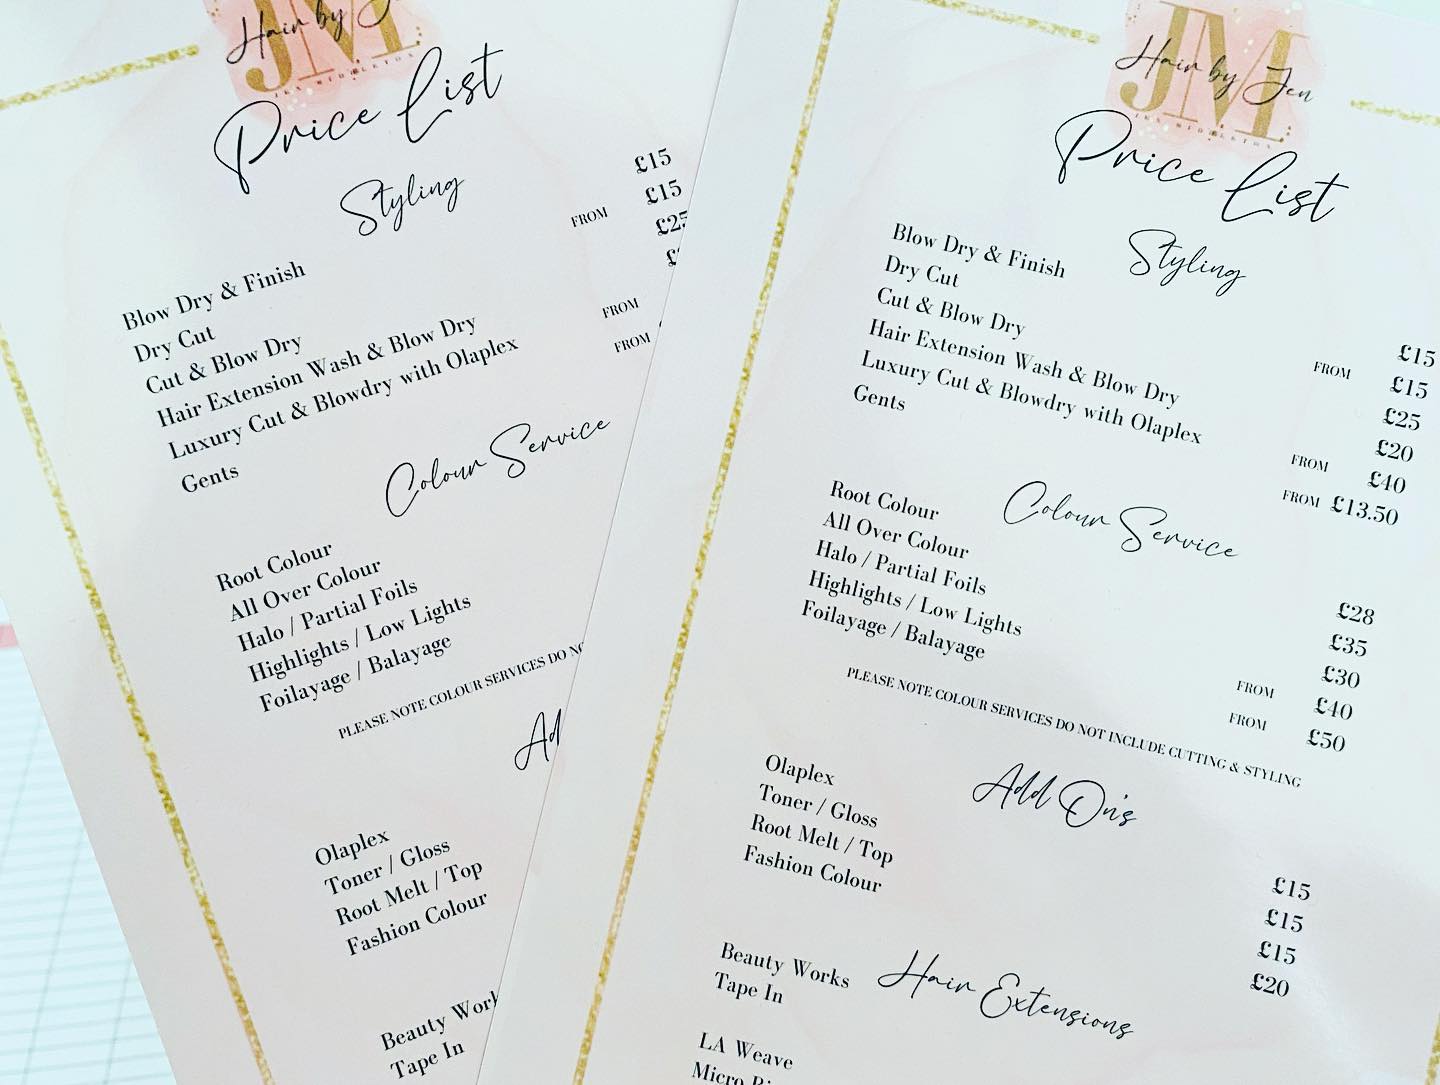 Hair by
JM
JEN MIDDLETON
Price List
Styling
Blow Dry & Finish £15
Dry Cut FROM £15
Cut & Blow Dry £25
Hair Extension Wash & Blow Dry
Luxury Cut & Blowdry with Olaplex FROM
Gents FROM
Colour Service
Root Colour
All Over Colour
Halo / Partial Foils
Highlights / Low Lights
Foilayage / Balayage
PLEASE NOTE COLOUR SERVICES DO
Olaplex
Toner / Gloss
Root Melt / Top
Fashion Colour
Beauty
Tape In
JM
Hair by Jen
JEN MIDDLETON
Price List
Styling
Blow Dry & Finish £15
Dry Cut FROM £15
Cut & Blow Dry £25
Hair Extension Wash & Blow Dry £20
Luxury Cut & Blowdry with Olaplex FROM £40
Gents FROM £13.50
Colour Service
Root Colour £28
All Over Colour £35
Halo / Partial Foils £30
Highlights / Low Lights FROM £40
Foilayage / Balayage FROM £50
PLEASE NOTE COLOUR SERVICES DO NOT INCLUDE CUTTING & STYLING
Add On's
Olaplex £15
Toner / Gloss £15
Root Melt / Top £15
Fashion Colour £20
Hair Extensions
Beauty Works
Tape In
LA Weave
Micro